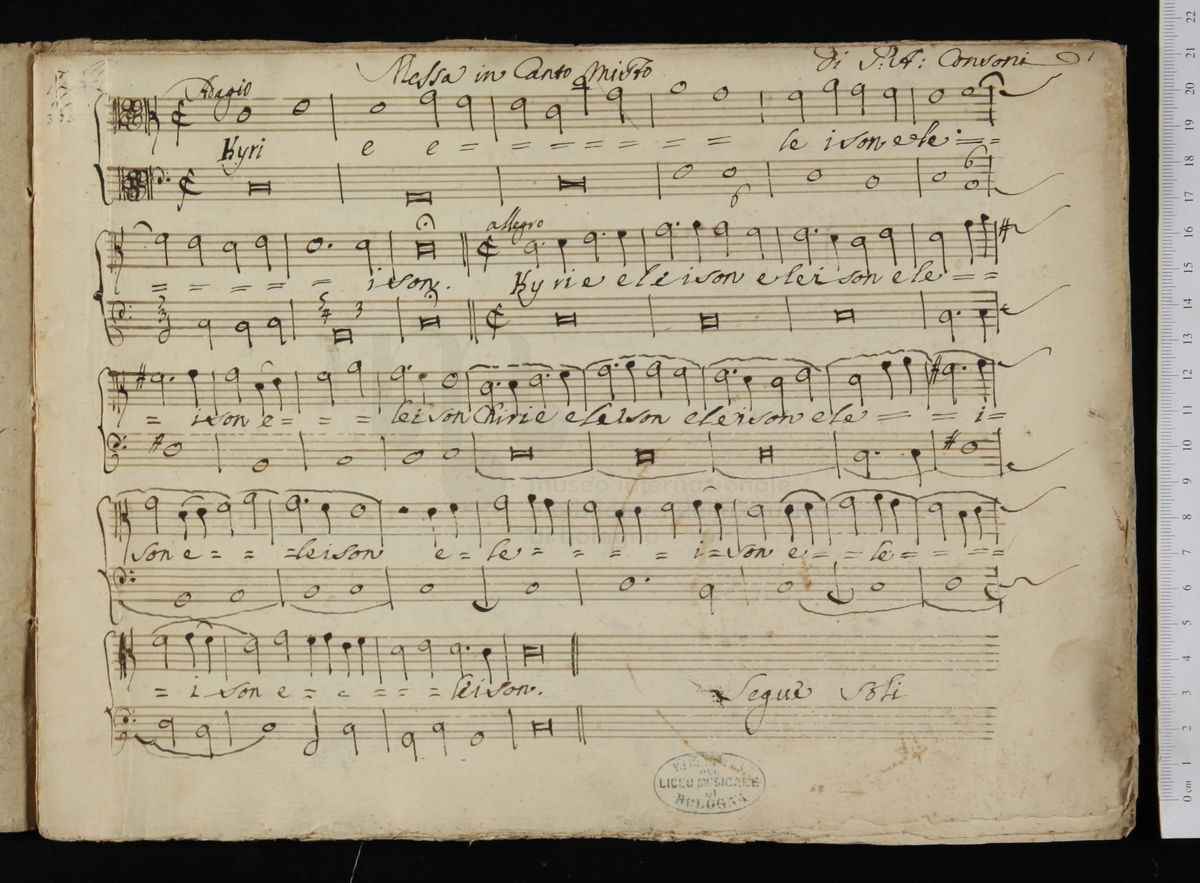 Messa in Canto Misto
di P: A: Consoni
1
Adagio
Kyri e e = = = = = = = = le ison ele = = =
6 6
= = = = = ison.
allegro
Kyrie eleison eleison ele = =
3 5 4 3
= ison e = = = leison Chirie eleison eleison ele = = i =
son e = = = leison e = le = = = = i = son e = = le = = = =
= i son e = = = = leison.
Segue Soli
LICEO MUSICALE
DI
BOLOGNA
museo internazionale
0 cm 1 2 3 4 5 6 7 8 9 10 11 12 13 14 15 16 17 18 19 20 21 22